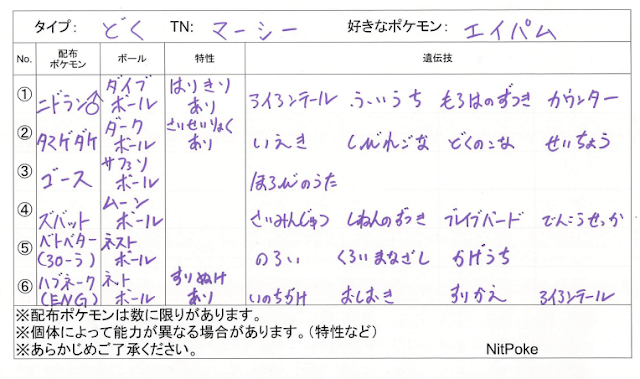 タイプ: どく TN: マーシー 好きなポケモン: エイパム
No. 配布ポケモン ボール 特性 遺伝技
① ニドラン♂ ダイブボール はりきりあり アイアンテール ふいうち もろはのずつき カウンター
② タマゲダケ ダークボール さいせいりょくあり いえき しびれごな どくのこな せいちょう
③ ゴース サファリボール ほろびのうた
④ ズバット ムーンボール さいみんじゅつ しねんのずつき ブレイブバード でんこうせっか
⑤ ベトベター(アローラ) ネストボール のろい くろいまなざし かげうち
⑥ ハブネーク(ENG) ネットボール すりぬけあり いのちがけ おしおき すりかえ アイアンテール
※配布ポケモンは数に限りがあります。
※個体によって能力が異なる場合があります。(特性など)
※あらかじめご了承ください。 NitPoke